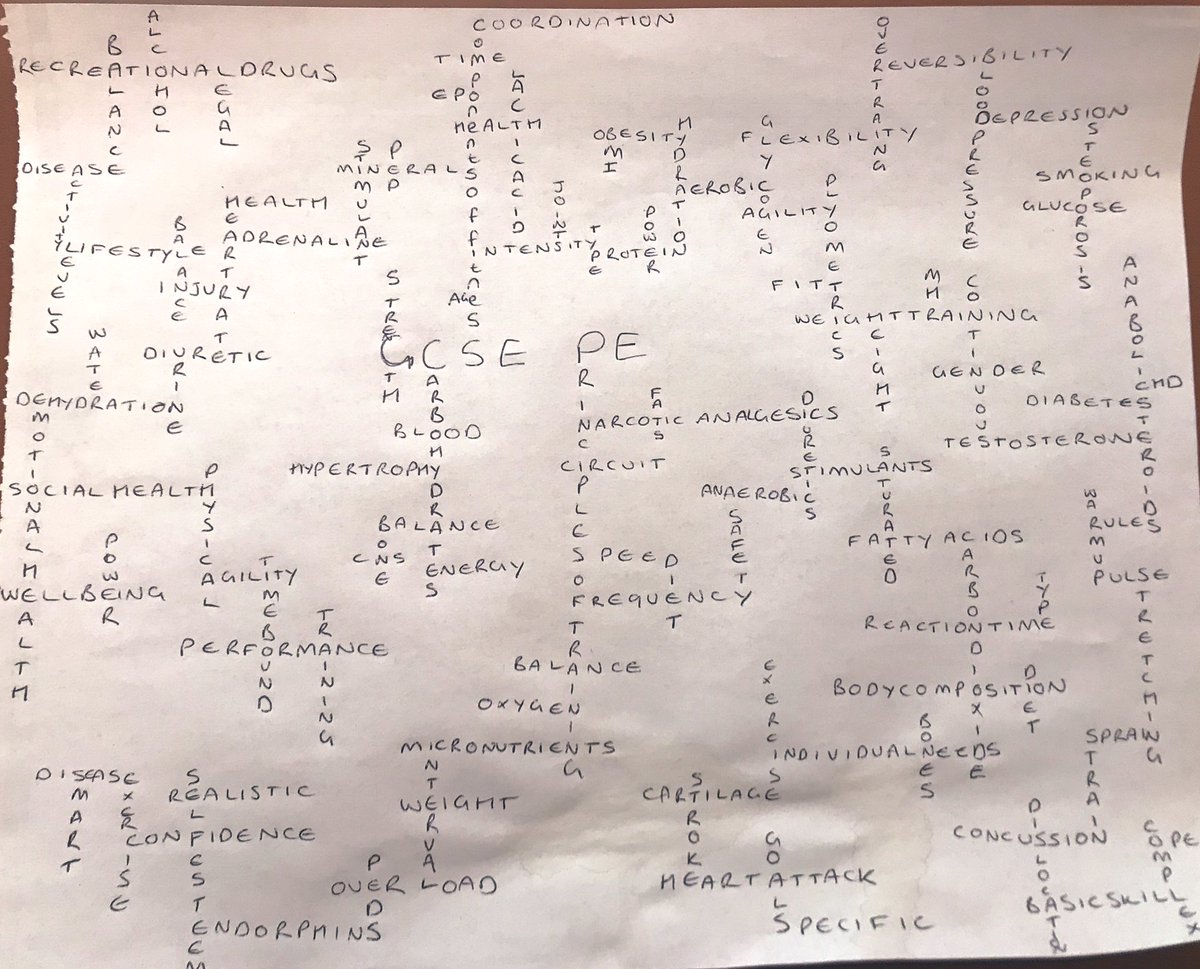 ALCOHOL
COORDINATION
OVERTRAING
BALANC
TIME
REVERSIBILITY
RECREATIONALDRUGS
LEGAL
EPO
LACTICACID
BLOODPRESSURE
componentsoffitness
HEALTH
OBESITY
HYDRATION
GLYCOGEN
FLEXIBILITY
DEPRESSION
DISEASE
STIMULANT
PPED
MINERALS
BMI
JOINT
AEROBIC
SMOKING
OSTEOPOROSIS
ACTIVITYLEVELS
HEALTH
HEARTRATE
POWER
AGILITY
PLYOMETRICS
GLUCOSE
BALANCE
ADRENALINE
LIFESTYLE
INTENSITY
TYPE
PROTEIN
INJURY
STRENGTH
Age
FITT
MHR
CONTINUOU
ANABOLICSTEROIDS
WATER
WEIGHTTRAINING
HEIGHT
DIURETIC
URINE
GCSE PE
CARBOHYDRATES
PRINCIPLESOFTRAINING
GENDER
CHD
DEHYDRATION
EMOTINALHEALTH
FATS
NARCOTIC ANALGESICS
DIURETICS
DIABETES
BLOOD
TESTOSTERONE
HYPERTROPHY
CIRCUIT
STIMULANTS
SATURATED
PHYSICAL
SOCIAL HEALTH
ANAEROBIC
WARMUP
RULES
BALANCE
BONE
SAFETY
FATTY ACIDS
CARBONDIOXIDE
POWER
CNS
ENERGY
SPEED
DIET
AGILITY
TIMEBOUND
PULSE
STRETCHING
WELLBEING
FREQUENCY
TYPE
TRINING
REACTIONTIME
PERFORMANCE
BALANCE
EXERCISE
DIET
BODYCOMPOSITION
OXYGEN
BONES
MICRONUTRIENTS
INTRVAL
INDIVIDUALNEEDS
SPRAIN
STRAIN
DISEASE
SMART
EXERCISE
SELFESTEEM
REALISTIC
WEIGHT
STROKE
CARTILAGE
CONFIDENCE
GOALS
CONCUSSION
COPE
COMPLEX
OVERLOAD
HEARTATTACK
BASICSKILL
ENDORPHINS
SPECIFIC